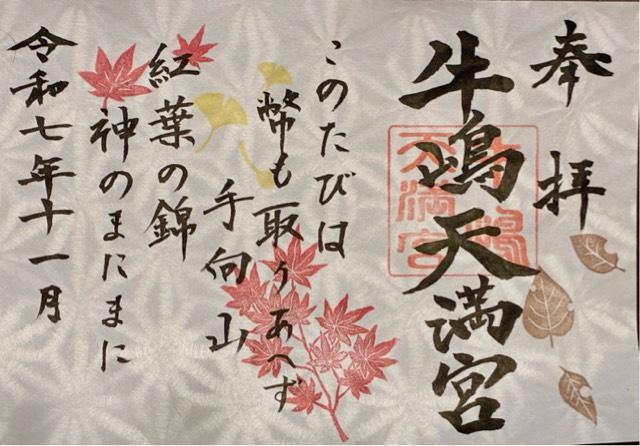 奉拝
牛嶋天満宮
牛嶋天満宮
このたびは
幣も取りあへず
手向山
紅葉の錦
神のまにまに
令和七年十一月